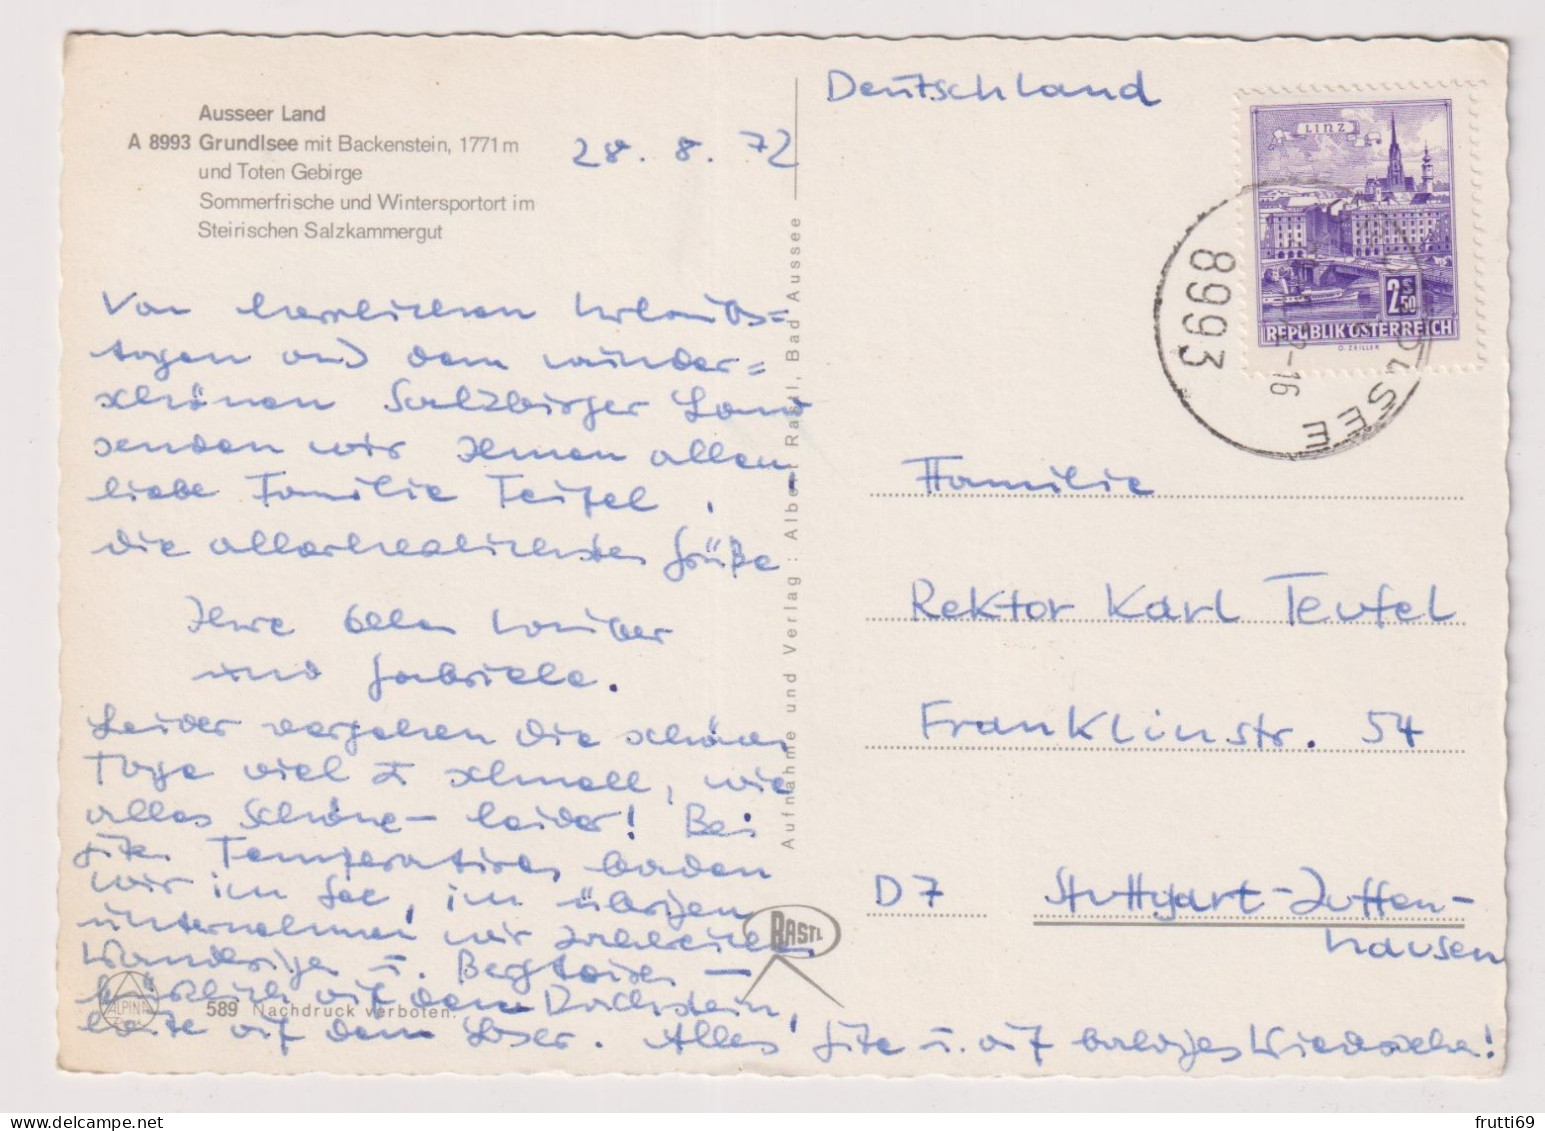 Ausseer Land
A 8993 Grundlsee mit Backenstein, 1771 m
und Toten Gebirge
Sommerfrische und Wintersportort im
Steirischen Salzkammergut
28. 8. 72
Von herrlichen Urlaubs-
tagen und dem wunder=
schönen Salzburger Land
senden wir Ihnen allen,
liebe Familie Teufel,
die allerherzlichsten Grüße
Ihre
und Gabriele.
Leider vergehen die schönen
Tage viel z. schnell, wie
alles Schöne - leider! Bei
guten Temperaturen baden
wir im See, im übrigen
unternehmen wir zahlreiche
Wanderungen u. Bergtouren -
kürzlich auf dem Dachstein,
heute auf dem Loser. Alles Gute u. auf baldiges Wiedersehn!
589 Nachdruck verboten.
ALPINA
Aufnahme und Verlag: Albert Rastl, Bad Aussee
RASTL
Deutschland
LINZ
2 S 50
REPUBLIK ÖSTERREICH
O. ZEILLER
8993
-16
Familie
Rektor Karl Teufel
Franklinstr. 54
D 7 Stuttgart-Zuffen-
hausen
frutti69